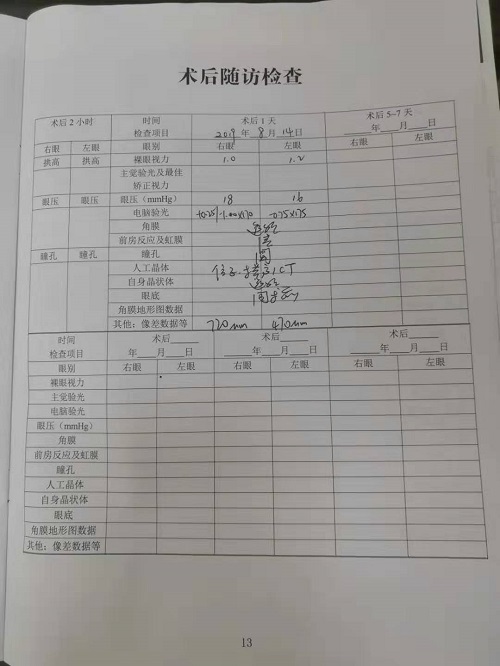 术后随访检查
术后2小时 时间 术后1天 术后5-7天
检查项目 2019年8月14日 年 月 日
右眼 左眼 眼别 右眼 左眼 右眼 左眼
拱高 拱高 裸眼视力 1.0 1.2
主觉验光及最佳
矫正视力
眼压 眼压 眼压(mmHg) 18 16
电脑验光 +0.25/-1.00×170 -0.75×175
角膜 透明
前房反应及虹膜
瞳孔 瞳孔 瞳孔 圆
人工晶体
自身晶状体 透明
眼底
角膜地形图数据
其他:像差数据等 720um 470um
时间 术后 术后 术后
检查项目 年 月 日 年 月 日 年 月 日
眼别 右眼 左眼 右眼 左眼 右眼 左眼
裸眼视力
主觉验光
电脑验光
眼压(mmHg)
角膜
前房反应及虹膜
瞳孔
人工晶体
自身晶状体
眼底
角膜地形图数据
其他:像差数据等
13